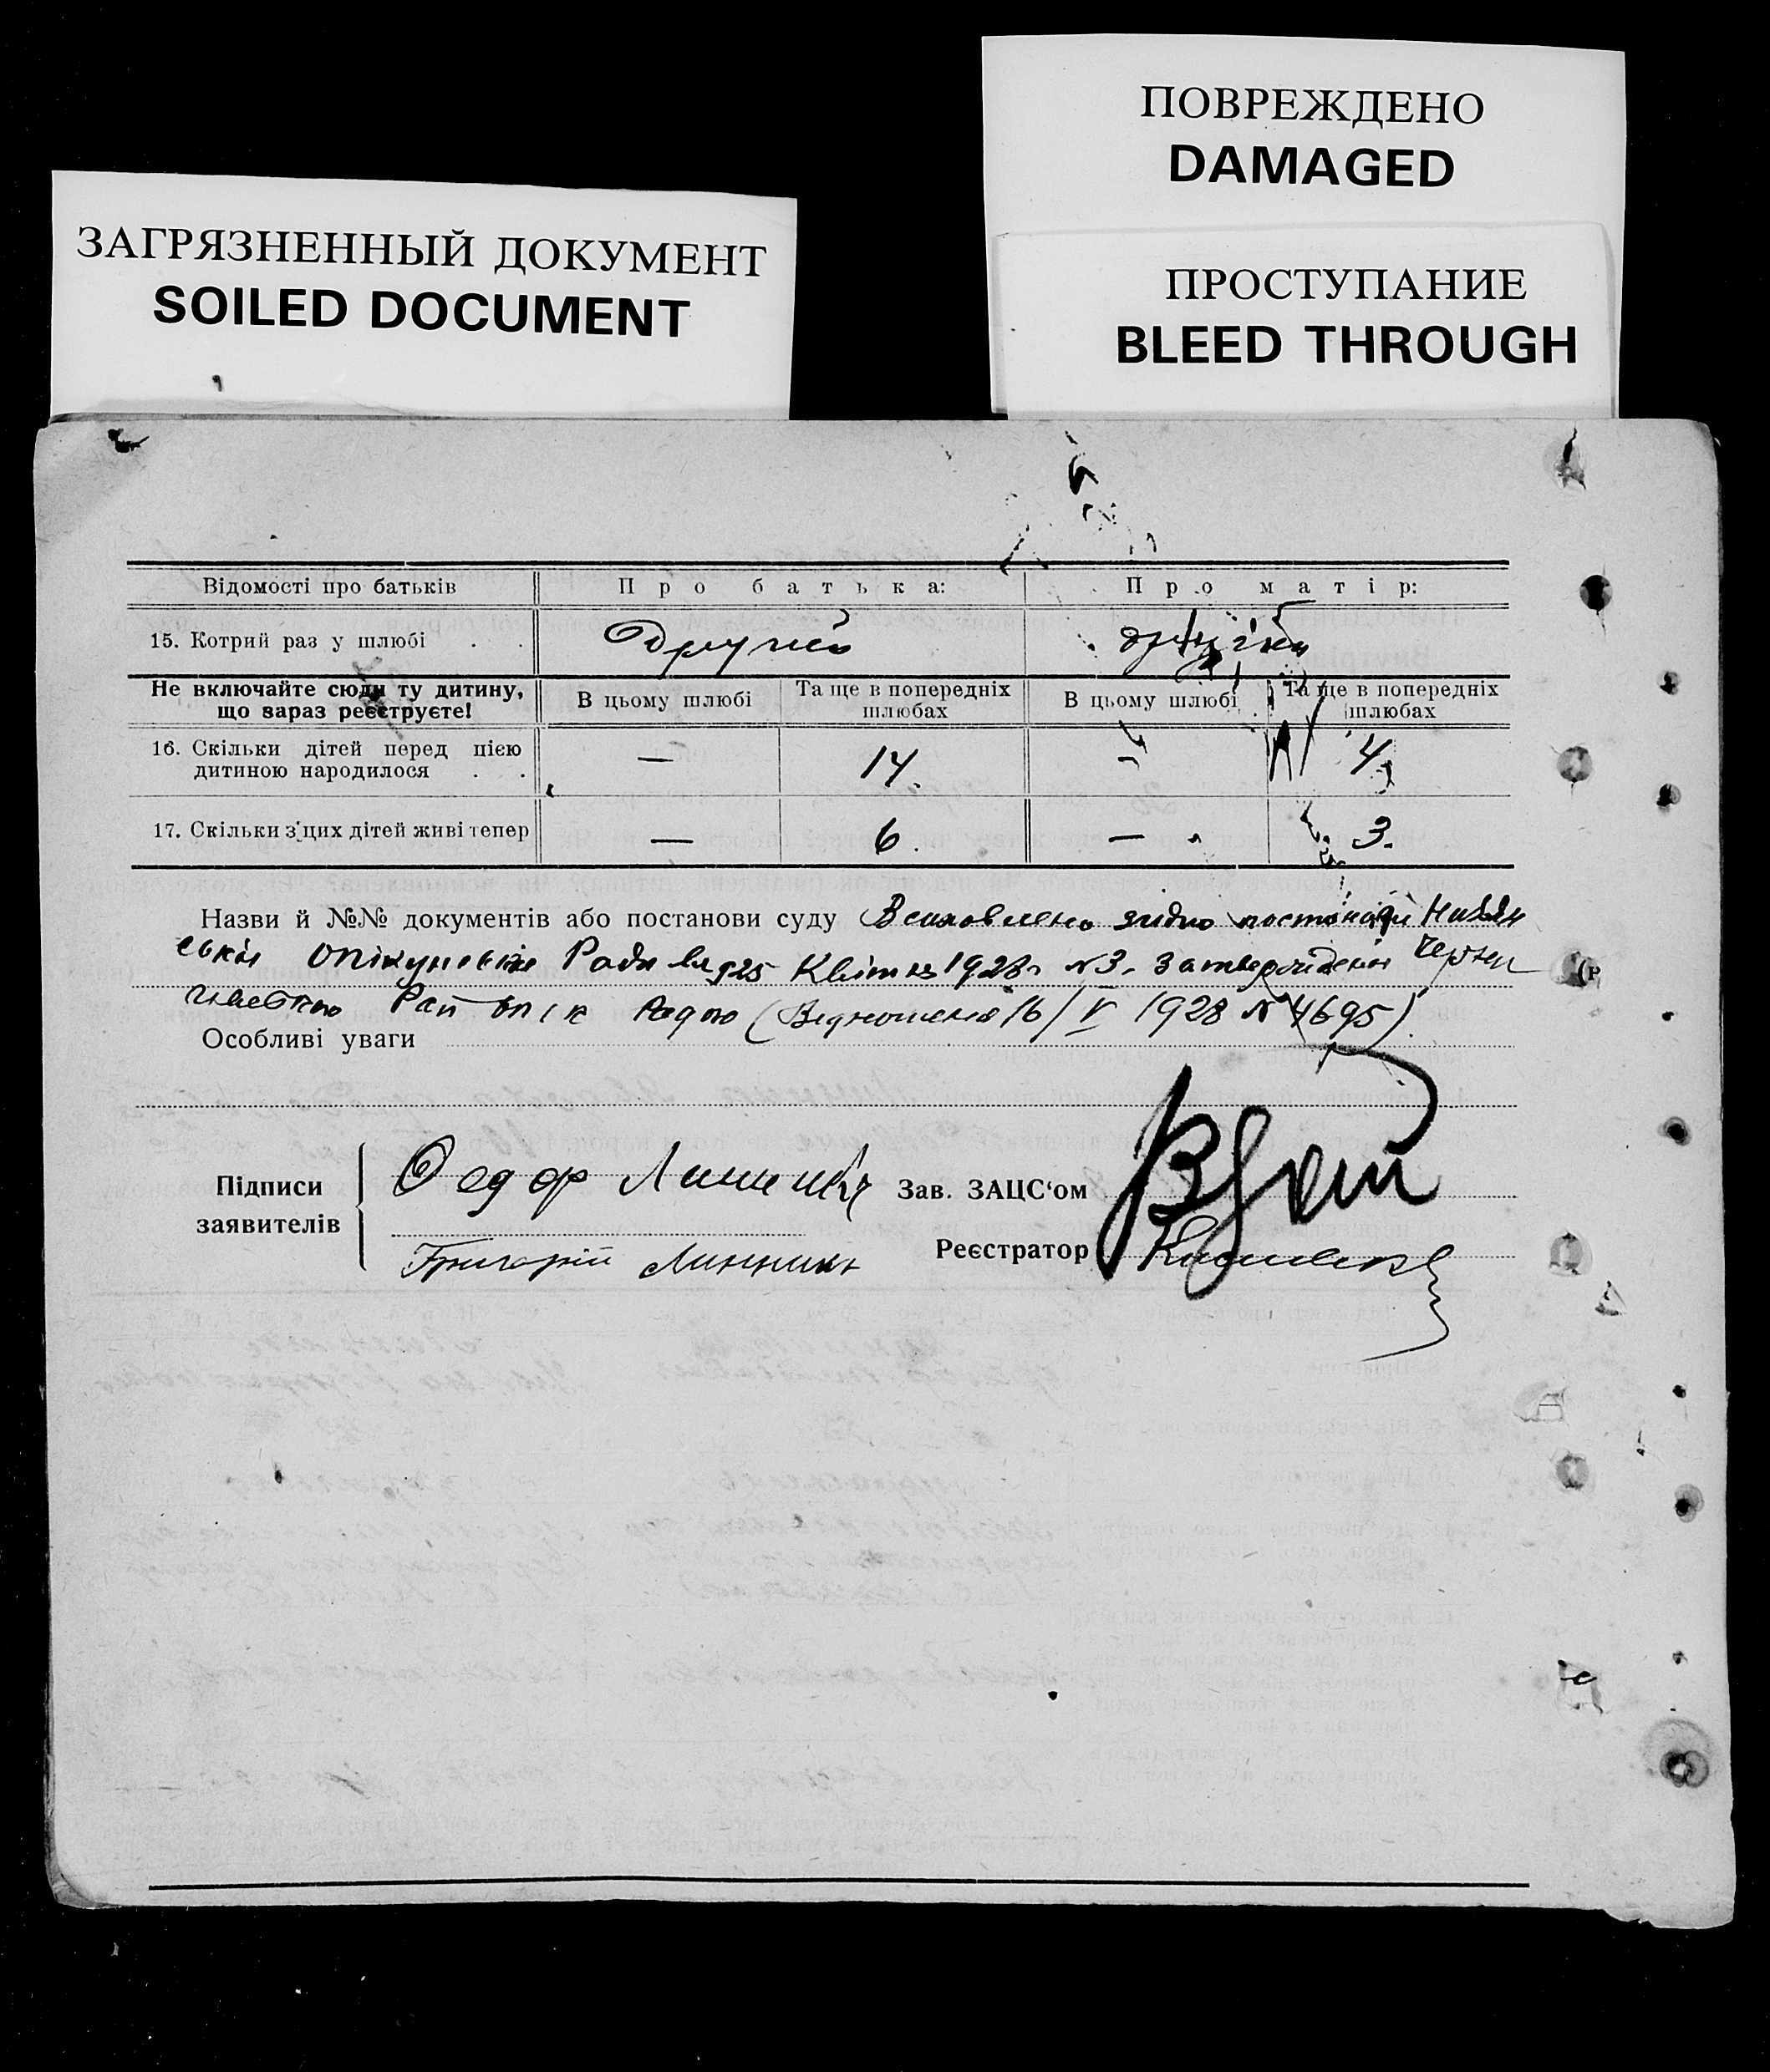 ПОВРЕЖДЕНО
DAMAGED
ЗАГРЯЗНЕННЫЙ ДОКУМЕНТ
SOILED DOCUMENT
ПРОСТУПАНИЕ
BLEED THROUGH
Відомості про батьків Про батька: Про матір:
15. Котрий раз у шлюбі . . Другий другий
Не включайте сюди ту дитину, що зараз реєструєте! В цьому шлюбі Та ще в попередніх шлюбах В цьому шлюбі Та ще в попередніх шлюбах
16. Скільки дітей перед цією
дитиною народилося . . — 14. — 4
17. Скільки з'цих дітей живі тепер — 6. — 3.
Назви й №№ документів або постанови суду Встановлено згідно постанови
Опікунської Ради від 25 Квітня 1928 р N3. затвердженої
Рай опік Радою (Відношення 16/V 1928 N 4695).
Особливі уваги
Підписи
заявителів
Федор Линник Зав. ЗАЦС'ом
Григорій Линник Реєстратор